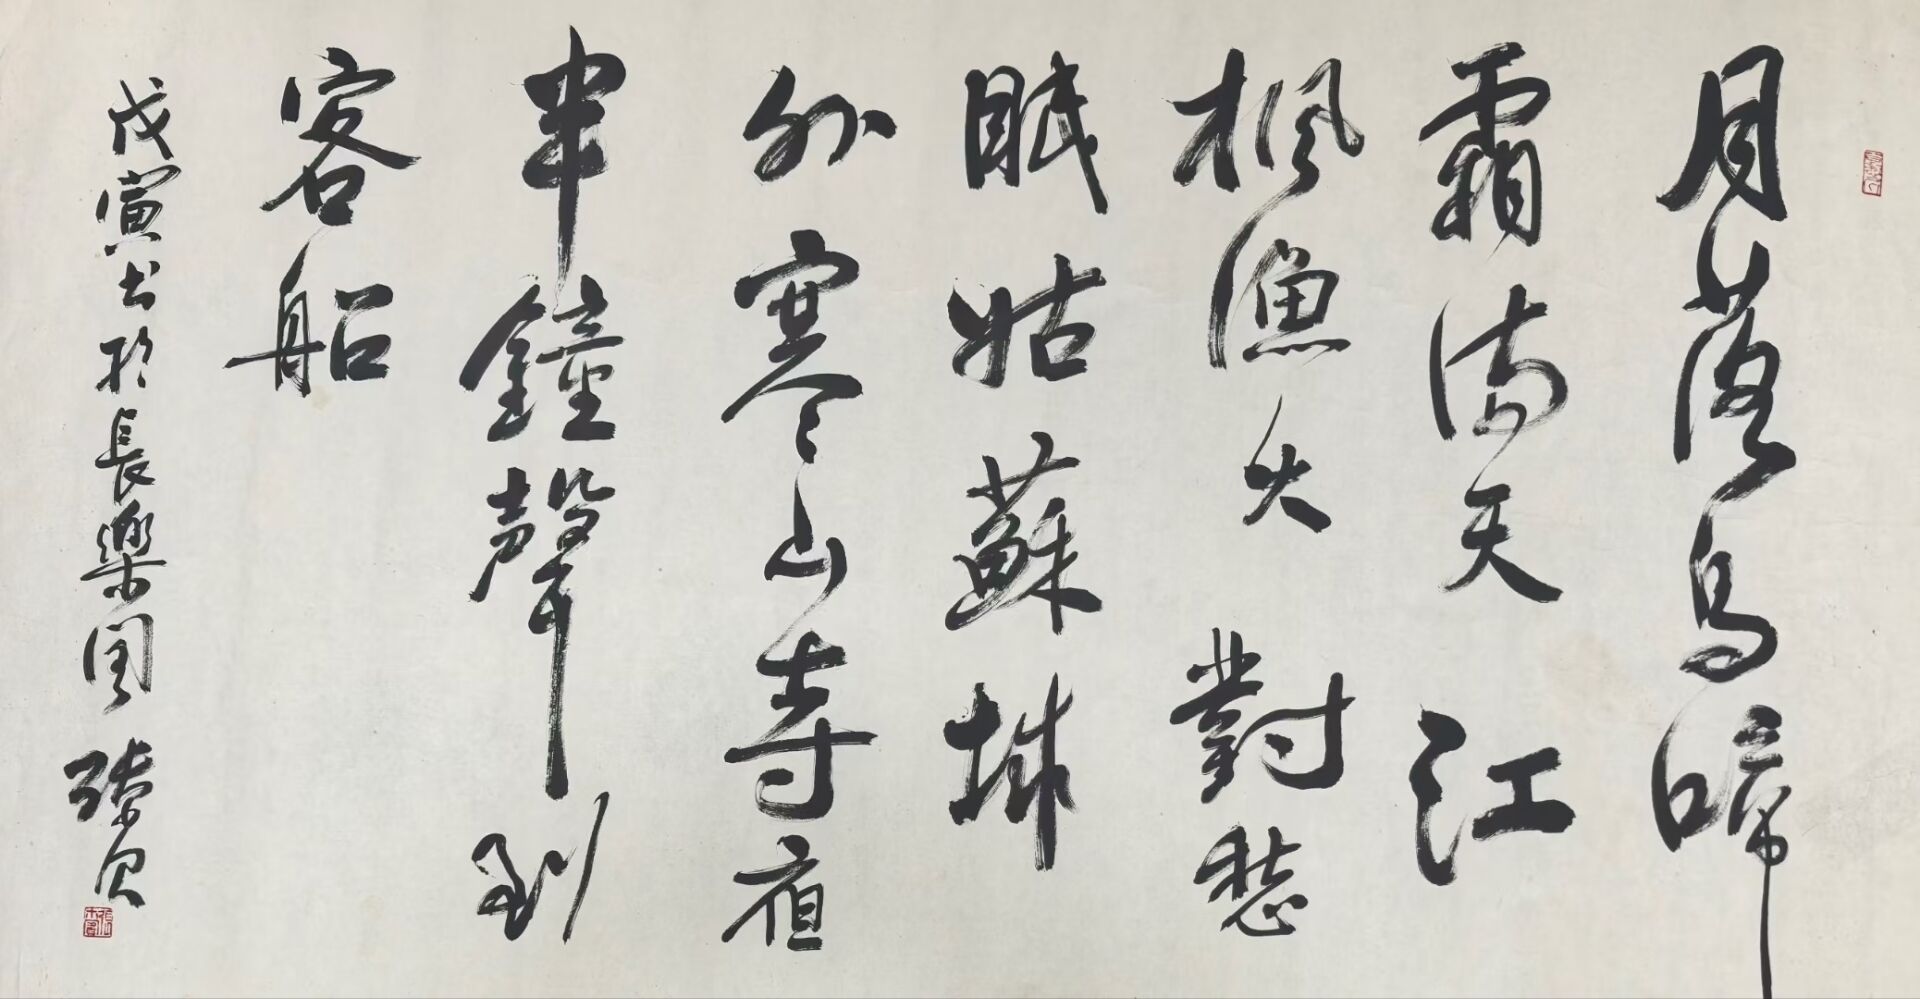 月落烏啼
霜滿天江
楓漁火對愁
眠姑蘇城
外寒山寺夜
半鐘聲到
客船
戊寅书於長樂